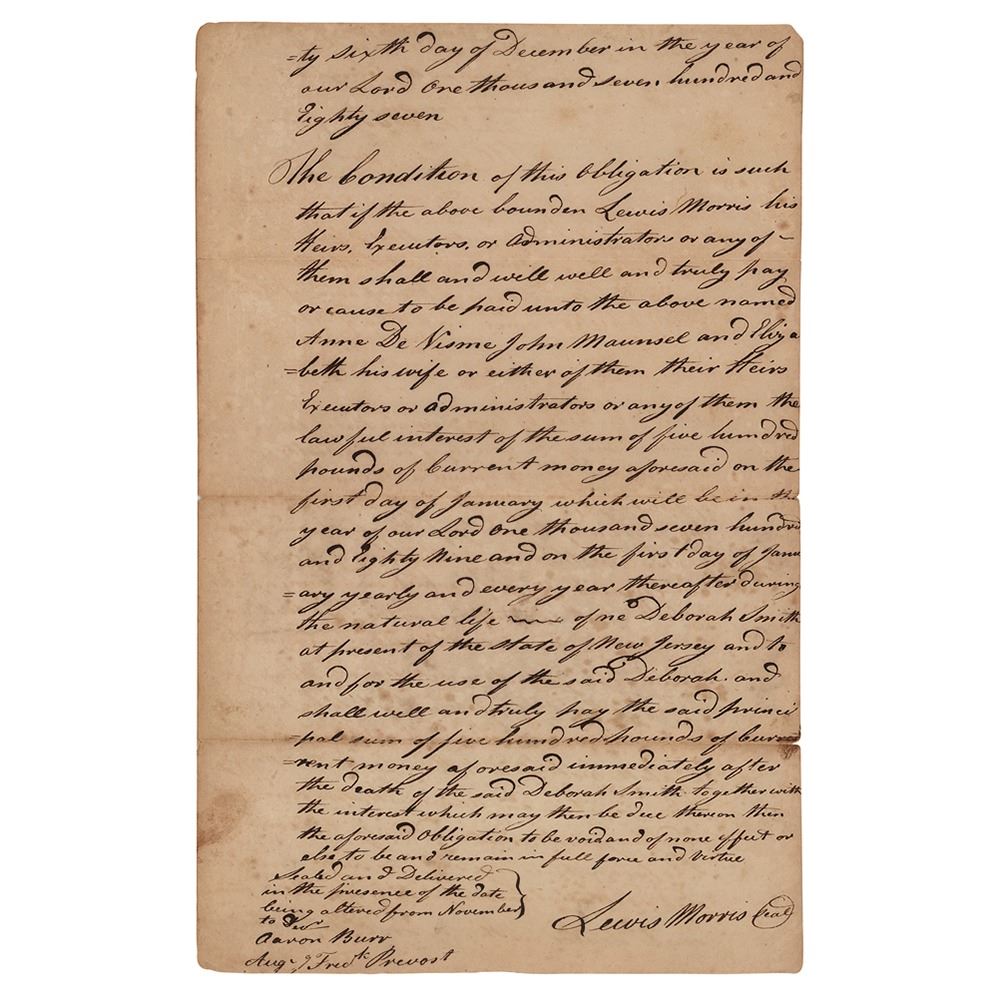 =ty sixth day of December in the year of
our Lord One thousand seven hundred and
Eighty seven
The Condition of this Obligation is such
that if the above bounden Lewis Morris his
Heirs, Executors, or Administrators or any of –
them shall and will well and truly pay
or cause to be paid unto the above named
Anne De Visme John Maunsel and Eliza
=beth his wife or either of them their Heirs
Executors or administrators or any of them the
lawful interest of the sum of five hundred
pounds of Current money aforesaid on the
first day of January which will be in the
year of our Lord One thousand seven hundred
and Eighty Nine and on the first day of Janu
=ary yearly and every year thereafter during
the natural life of ne Deborah Smith
at present of the State of New Jersey and to
and for the use of the said Deborah. and
shall well and truly pay the said princi
=pal sum of five hundred pounds of Cur
=rent money aforesaid immediately after
the death of the said Deborah Smith together with
the interest which may then be due thereon then
the aforesaid Obligation to be void and of none effect or
else to be and remain in full force and virtue
Sealed and Delivered
in the presence of the date
being altered from November
to Decr
Lewis Morris Seal
Aaron Burr
Augs Fredk Prevost